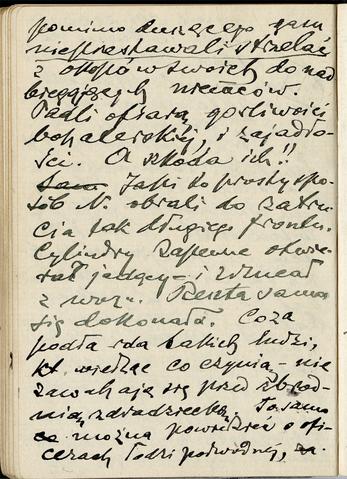 pomimo duszącego gazu
nieprzestawali strzelać
z okopów swoich do nad
biegających niemców.
Padli ofiarą gorliwości
bohaterskiej, i zajadło-
ści. A szkoda ich!!
Jaki to prosty spo-
sób N. obrali do zatru-
cia tak długiego frontu.
Cylindry zapewne otwie-
rał jadący – i zdmuchał
z wozu. Reszta sama
się dokonała. Co za
podła rda takich ludzi,
kt. wiedząc co czynią – nie
zawahają się przed zbrod-
nią zdradziecką. To samo
można powiedzieć o ofi-
cerach łodzi podwodnej,